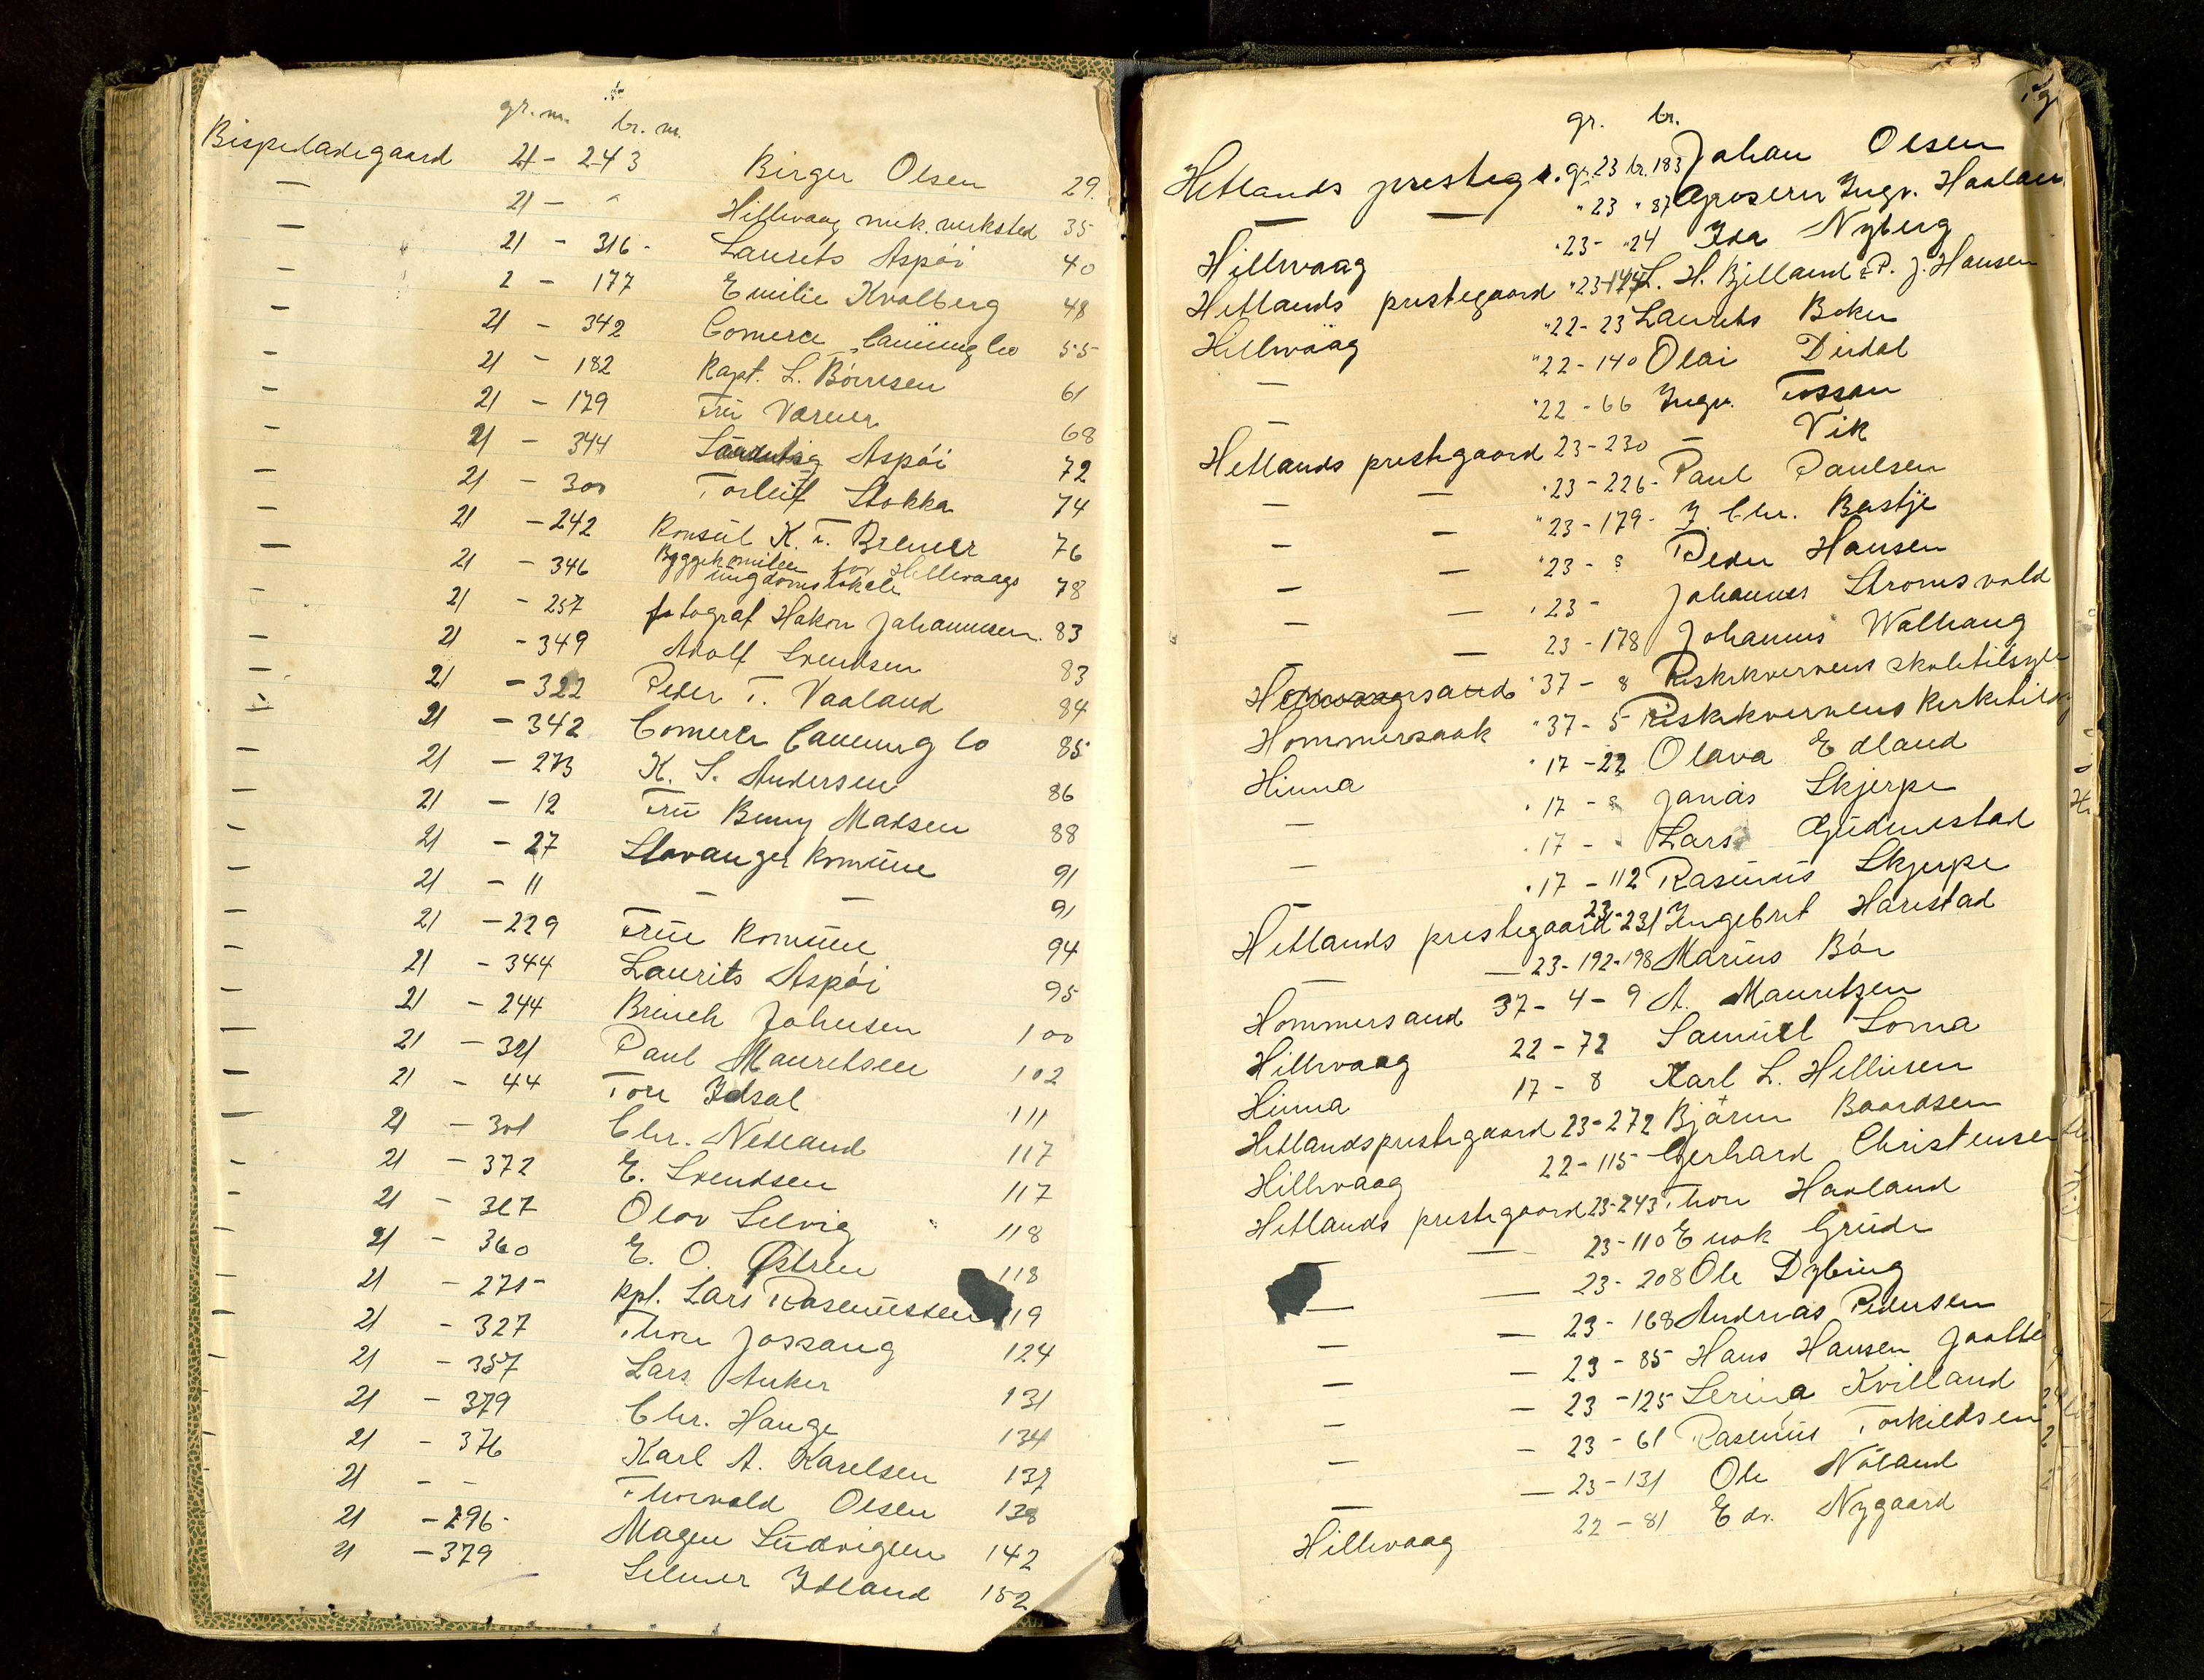 gr. nr. br. nr.
Bispeladegaard 21 - 243 Birger Olsen 29.
— 21 - " Hillevaag mek. verksted 35
— 21 - 316 - Laurits Aspöi 40
— 2 - 177 Emilie Kvalberg 48
— 21 - 342 Comerce Canning Co 55
— 21 - 182 Kapt. L. Börresen 61
— 21 - 179 Frü Varner 68
— 21 - 344 Aspöi 72
— 21 - 300 Torleif Stokka 74
— 21 - 242 Konsül K. T. Brener 76
— 21 - 346 Byggekomiteen for Hillevaags
üngdomslokale 78
— 21 - 257 fotograf Hakon Johannesen. 83
— 21 - 349 Adolf Svendsen 83
— 21 - 322 Peder T. Vaaland 84
— 21 - 342 Comerce Canning Co 85
— 21 - 273 K. S. Andersen 86
— 21 - 12 Frü Benny Madsen 88
— 21 - 27 Stavanger Komüne 91
— 21 - 11 — — 91
— 21 - 229 Frue Komüne 94
— 21 - 344 Laurits Aspöi 95
— 21 - 244 Breück Johnsen 100
— 21 - 321 Paul Mauritsen 102
— 21 - 44 Tore Idsal 111
— 21 - 301 Chr. Nedland 117
— 21 - 372 E. Svendsen 117
— 21 - 317 Olav Selvig 118
— 21 - 360 E. O. Østren 118
— 21 - 275 Kpt. Lars Rasmüssen 119
— 21 - 327 Thore Jossang 124
— 21 - 357 Lars Anker 131
— 21 - 379 Chr. Hauge 134
— 21 - 376 Karl A. Karelsen 137
— 21 - - Thorvald Olsen 138
— 21 - 296 - Magen Lüdvigsen 142
— 21 - 379 Selmer Idland 152
gr. br.
Hetlands presteg. gr. 23 br. 183 Johan Olsen
— — " 23 " 87 Grosern Ingv. Haaland
Hillevaag " 23 - " 24 Ida Nyberg
Hetlands prestegaard " 23 - 144 L. H. Bjelland & P. J. Hansen
Hillevaag " 22 - 23 Laurits Boken
— " 22 - 140 Olai Dirdal
— " 22 - 66 Ingv. Tossan
Hetlands prestegaard 23 - 230 — Vik
— — " 23 - 226 - Paul Paulsen
— — " 23 - 179 - J. Chr. Bastje
— — " 23 - 8 Peder Hansen
— — " 23 - Johannes Stromsvold
— — 23 - 178 Johannes Walhaug
" 37 - 8 Riskekvernens skoletilsyn
Hommersaak " 37 - 5 Riskekvernens Kirketils
Hinna " 17 - 22 Olava Edland
— " 17 - 8 Janas Skjerpe
— " 17 - " Lars Güdmestad
— " 17 - 112 Rasmus Skjerpe
Hetlands prestegaard 23 - 231 Ingebret Harestad
— 23 - 192 - 198 Marius Bör
Hommersand 37 - 4 - 9 A. Mauritzen
Hillevaag 22 - 72 Samüel Soma
Hinna 17 - 8 Karl L. Hellüsen
Hetlandsprestegaard 23 - 272 Bjärne Baardsen
Hillevaag 22 - 115 Gerhard Christensen
Hetlands prestegaard 23 - 243 Thore Haaland
— 23 - 110 Enok Grüde
— — 23 - 208 Ole Dybing
— — 23 - 168 Andreas Pedersen
— — 23 - 85 Hans Hansen
— — 23 - 125 Serina Kvilland
— — 23 - 61 Rasmüs Torkildsen
— — 23 - 131 Ole Nåland
Hillevaag 22 - 81 Edv. Nygaard